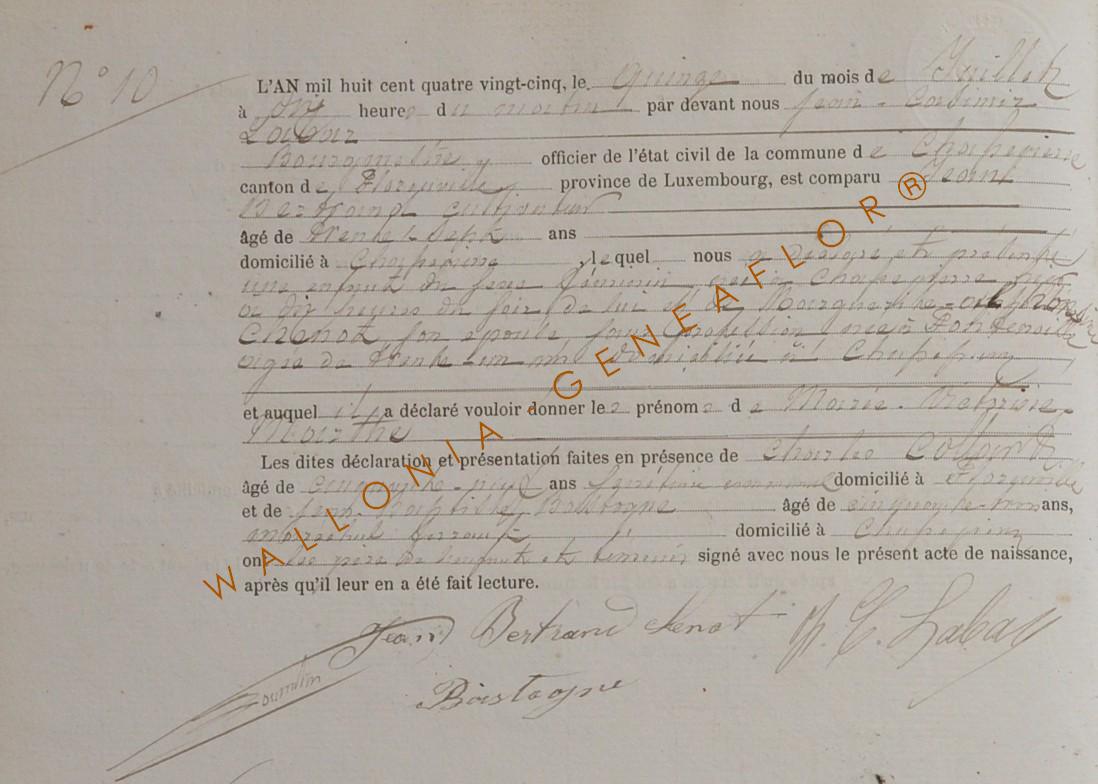 N° 10
L'AN mil huit cent quatre vingt-cinq, le quinze du mois de Juillet
à heure du matin par devant nous Jean - Casimir
Bourgmestre officier de l'état civil de la commune de Chassepierre
canton de Florenville, province de Luxembourg, est comparu Jean
Bertrand cultivateur
âgé de trente-sept ans
domicilié à Chassepierre, lequel nous a déclaré et présenté
une enfant du sexe féminin, née à Chassepierre
dix heures du soir de lui et de Marguerite
Chenot son épouse sans profession née à Fontenoille
âgée de trente-un domiciliée à Chassepierre
et auquel il a déclaré vouloir donner le prénom de Marie
Marthe
Les dites déclaration et présentation faites en présence de Charles Collard
âgé de cinquante-neuf ans domicilié à Florenville
et de Jean Baptiste Bastogne âgé de cinquante-trois ans,
maréchal ferrant domicilié à Chassepierre
ont le père de l'enfant et témoins signé avec nous le présent acte de naissance,
après qu'il leur en a été fait lecture.
Jean Bertrand Chenot
Bastogne
WALLONIA - GENEAFLOR ®